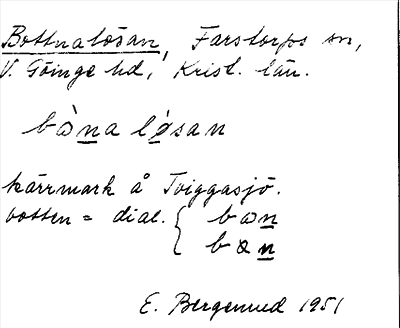 Bottnalösan, Farstorps sn,
V. Göinge hd, Krist. län.
bɷ̀na løsan
kärrmark å Tviggasjö.
botten = dial. { bɷn
bɑn
E. Bergenrud 1951